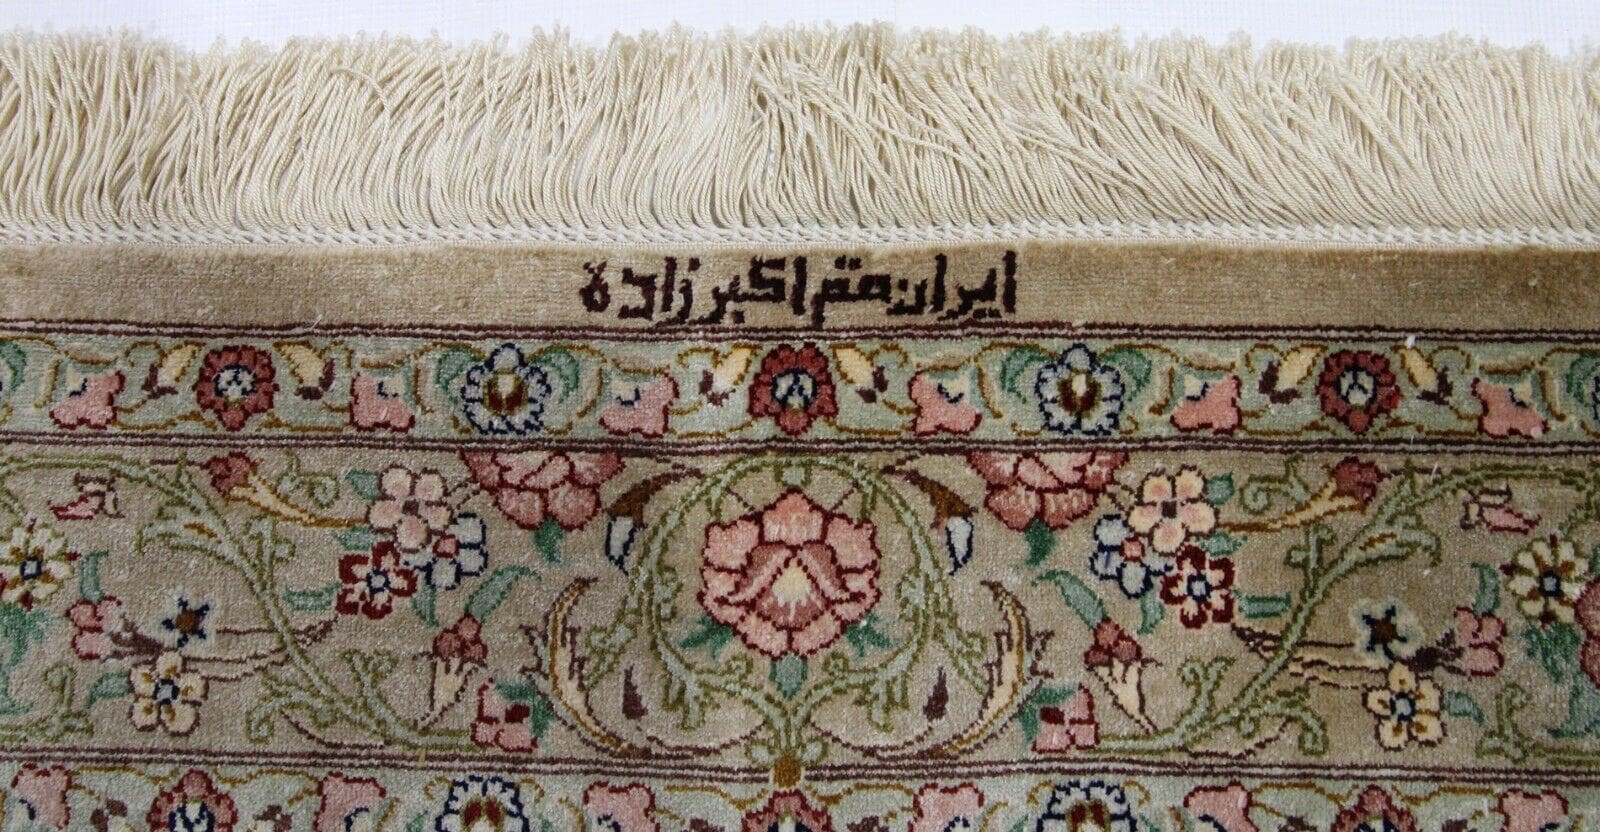 ایران قم اکبر زاده